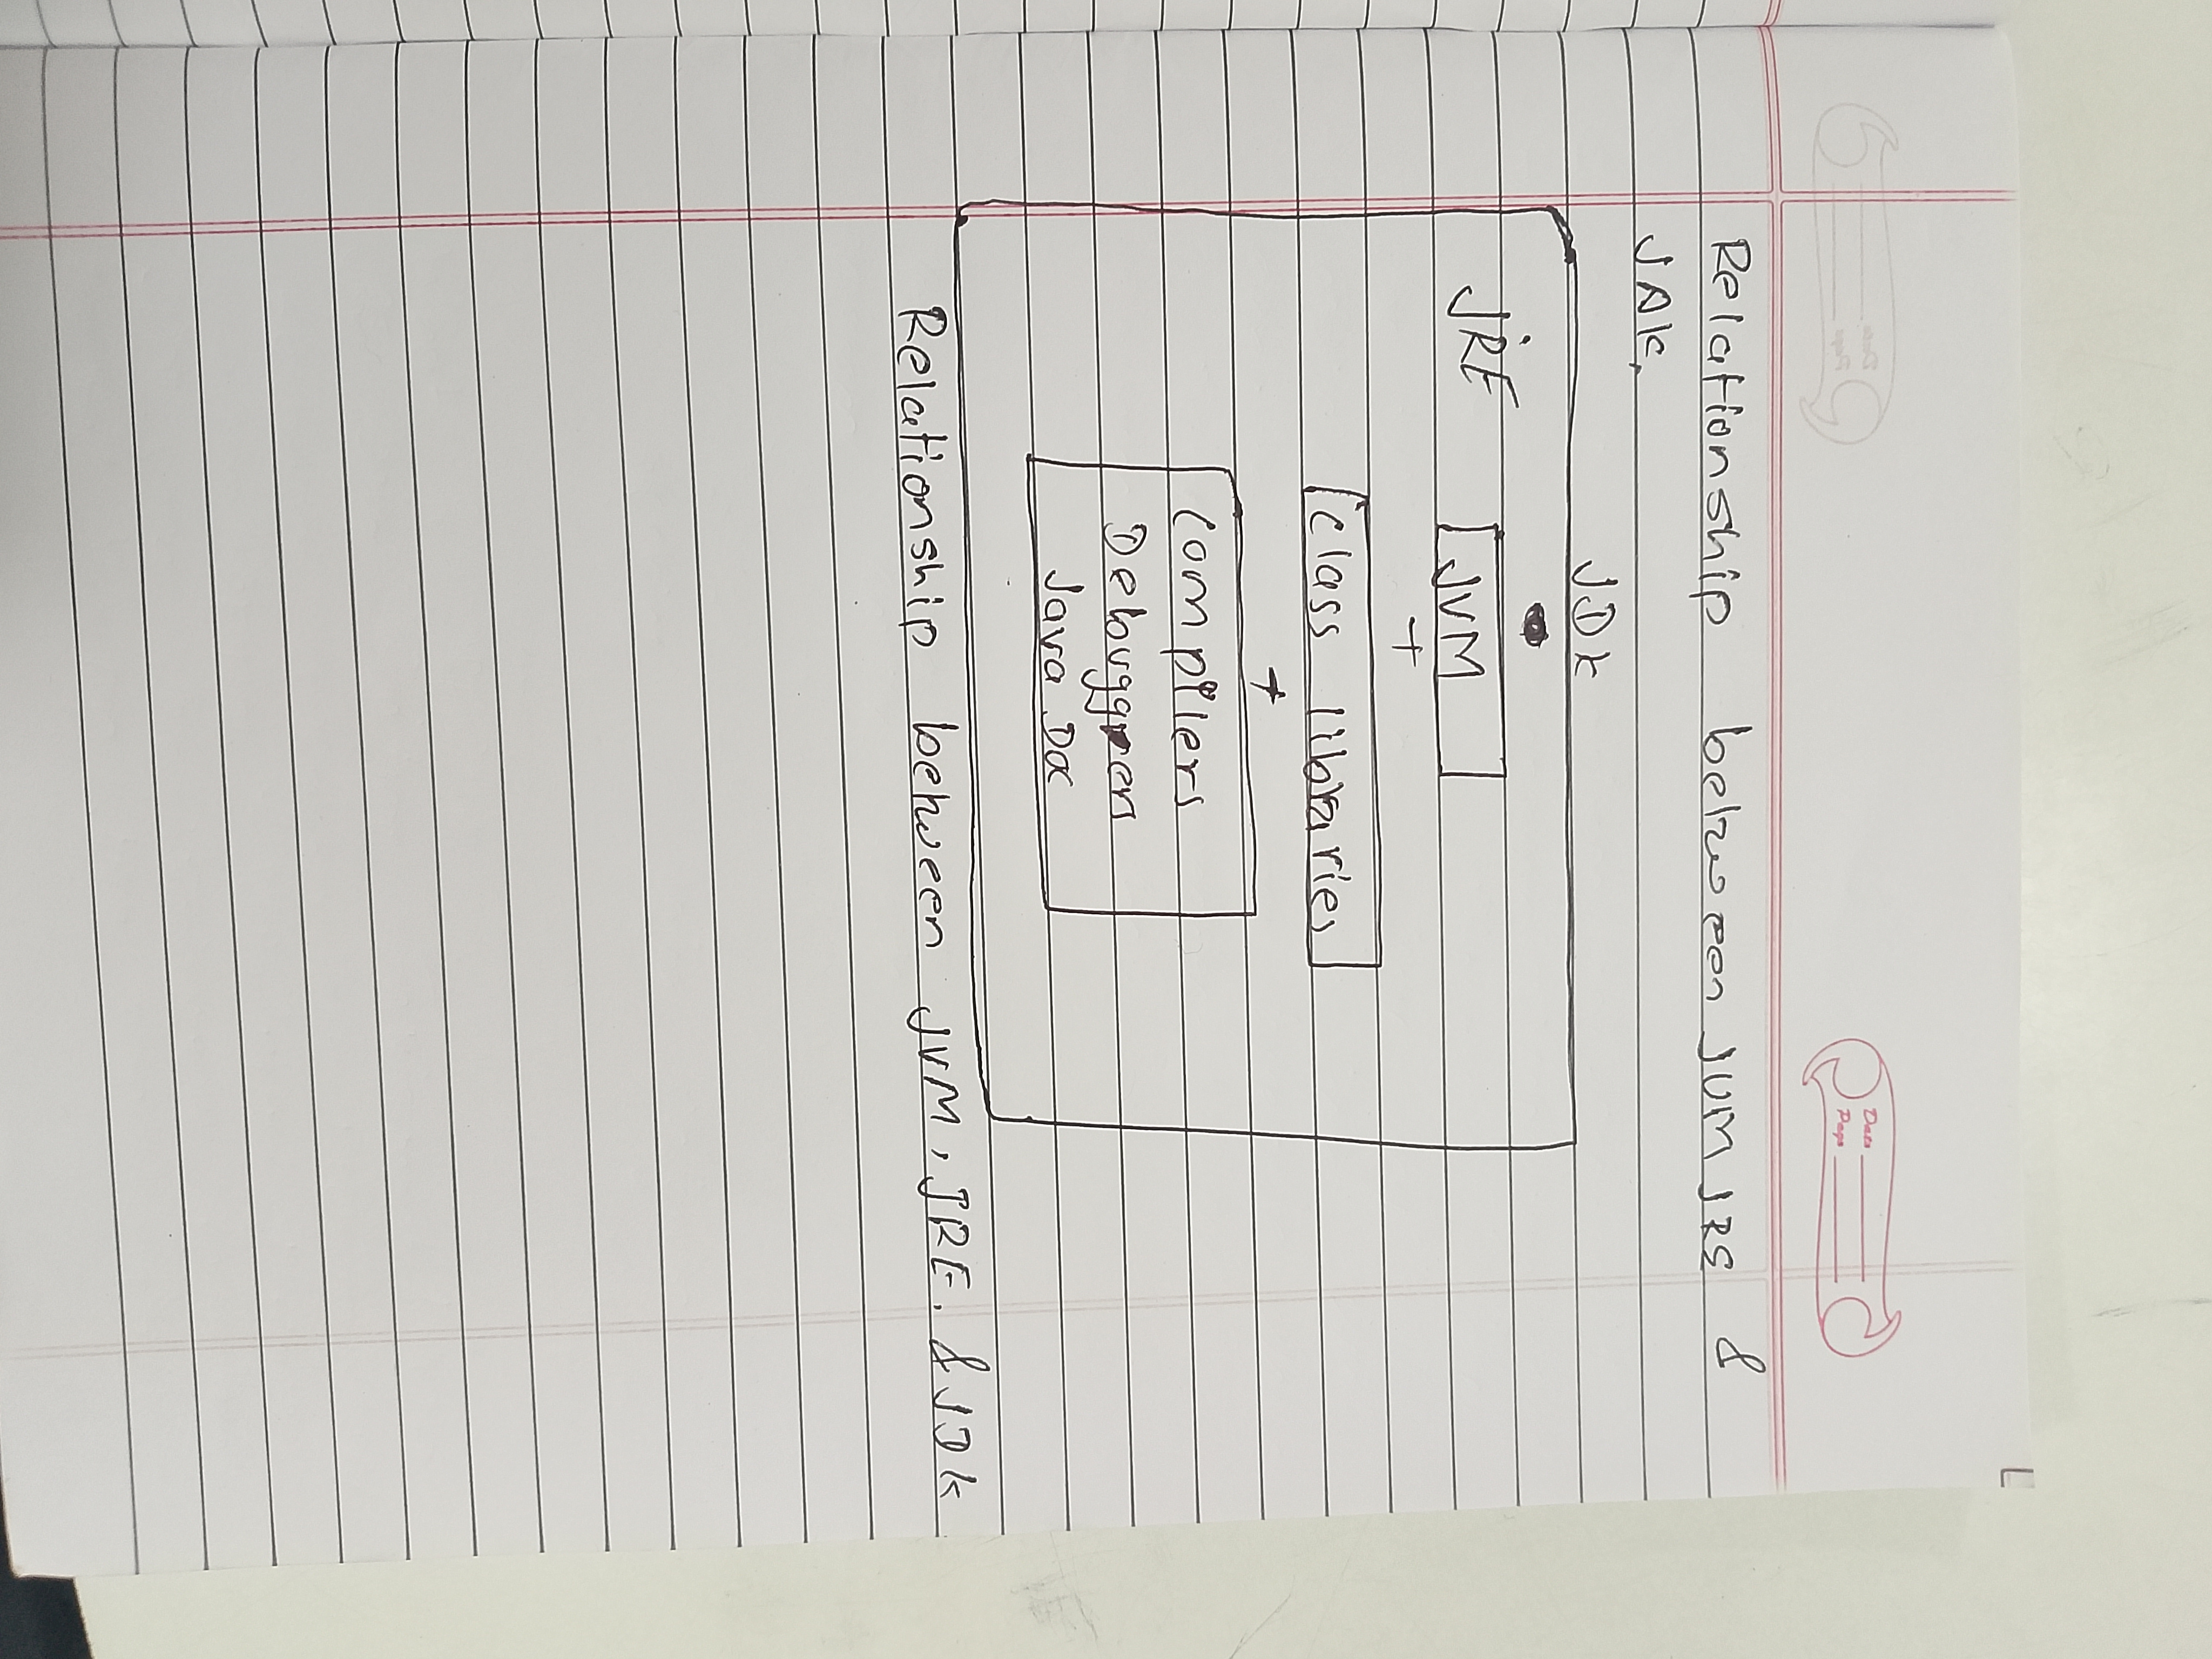 Date
Page
Relationship between JVM JRE &
JDK.
JDK
JRE
JVM
+
Class libraries
+
Compilers
Debuggers
Java Doc
Relationship between JVM, JRE. & JDK